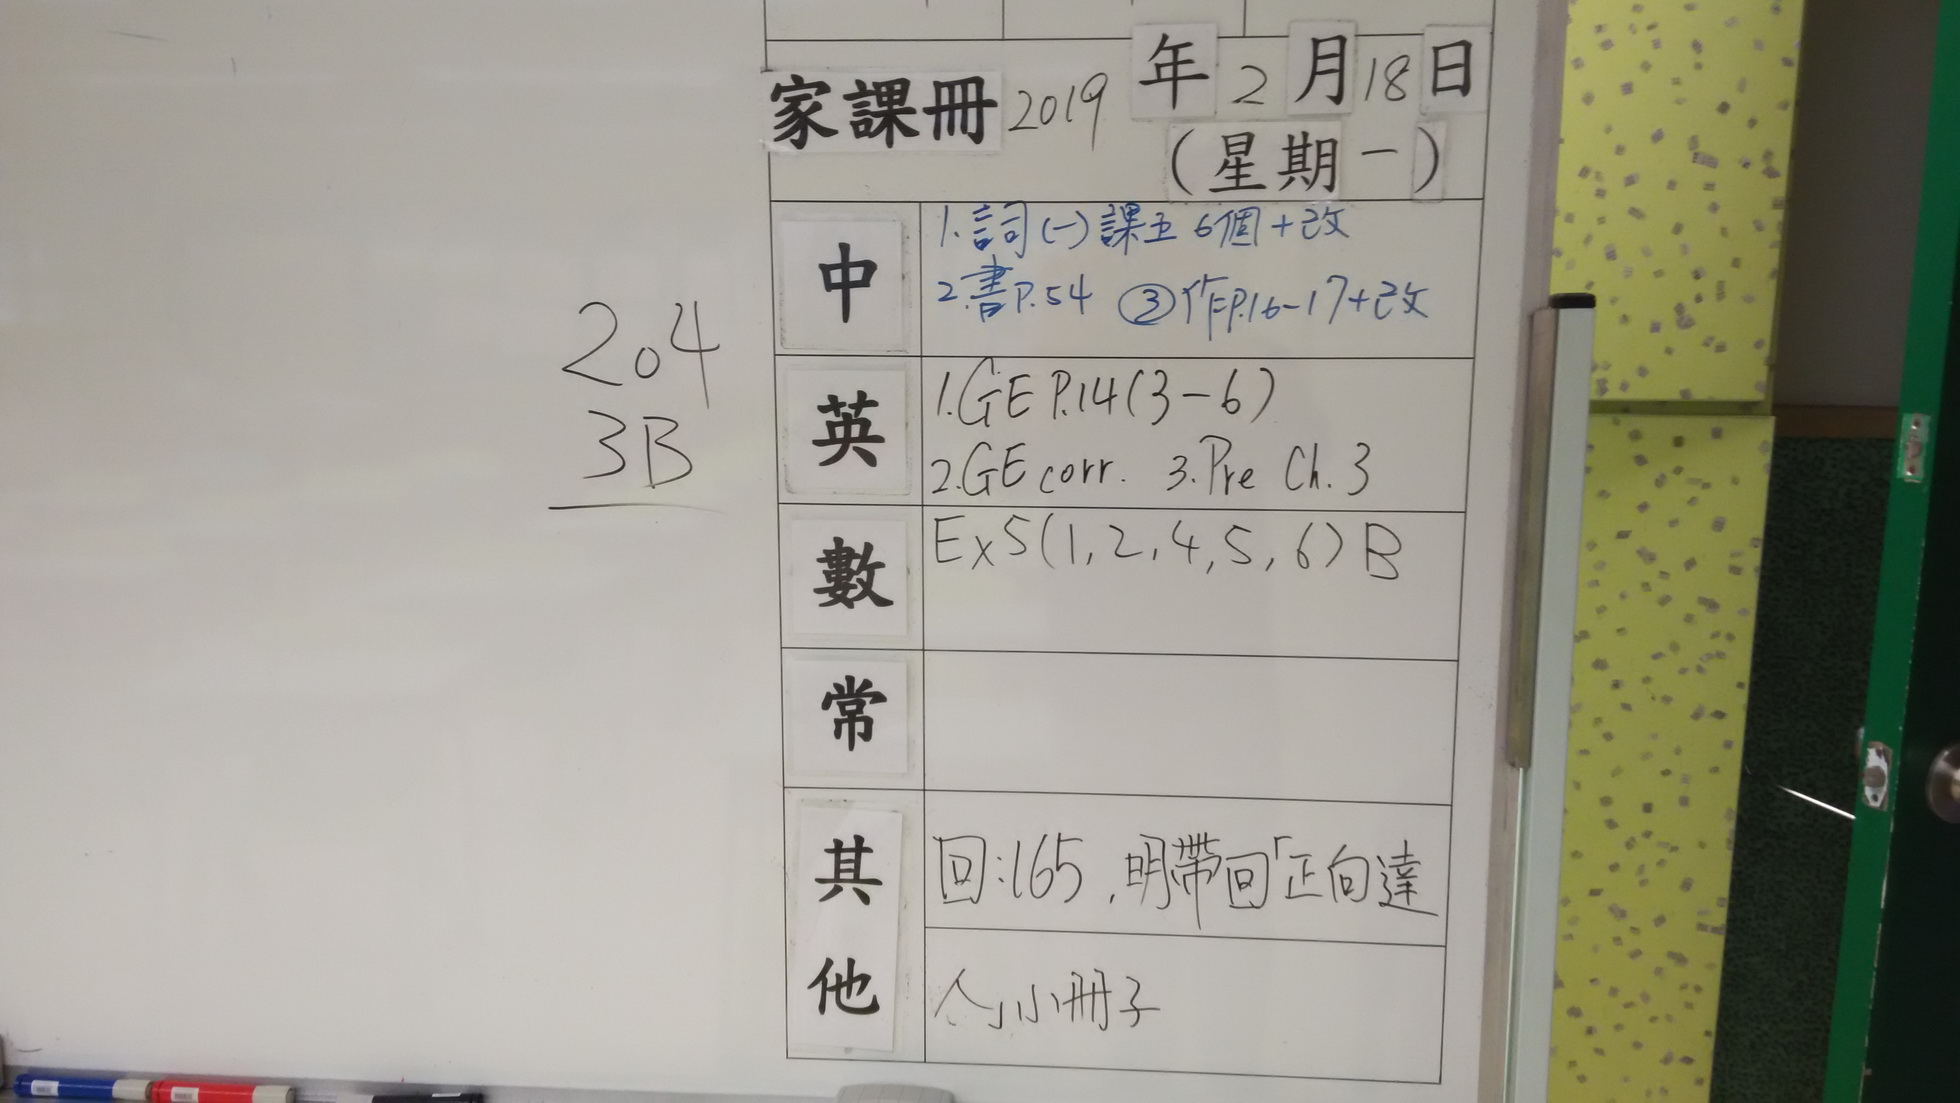 204
3B
家課冊 2019 年 2 月 18 日
(星期一)
中
1. 詞(一) 課五 6個+改
2. 書P.54 ③作P.16-17+改
英
1. GE P.14(3-6)
2. GE corr. 3. Pre Ch. 3
數
Ex5(1,2,4,5,6) B
常
其他
回:165,明帶回「正向達
人」小冊子